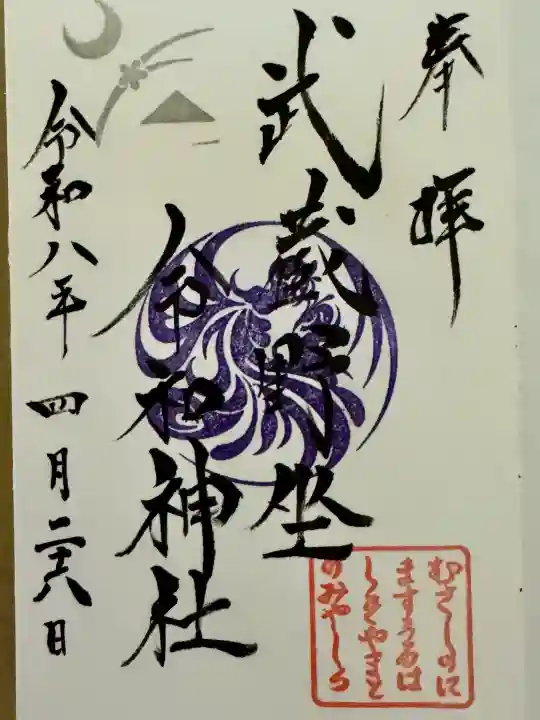 奉拝
武蔵野坐
令和神社
令和八年四月二十八日
むさしのに
ますうるは
しきやまと
のみやしろ